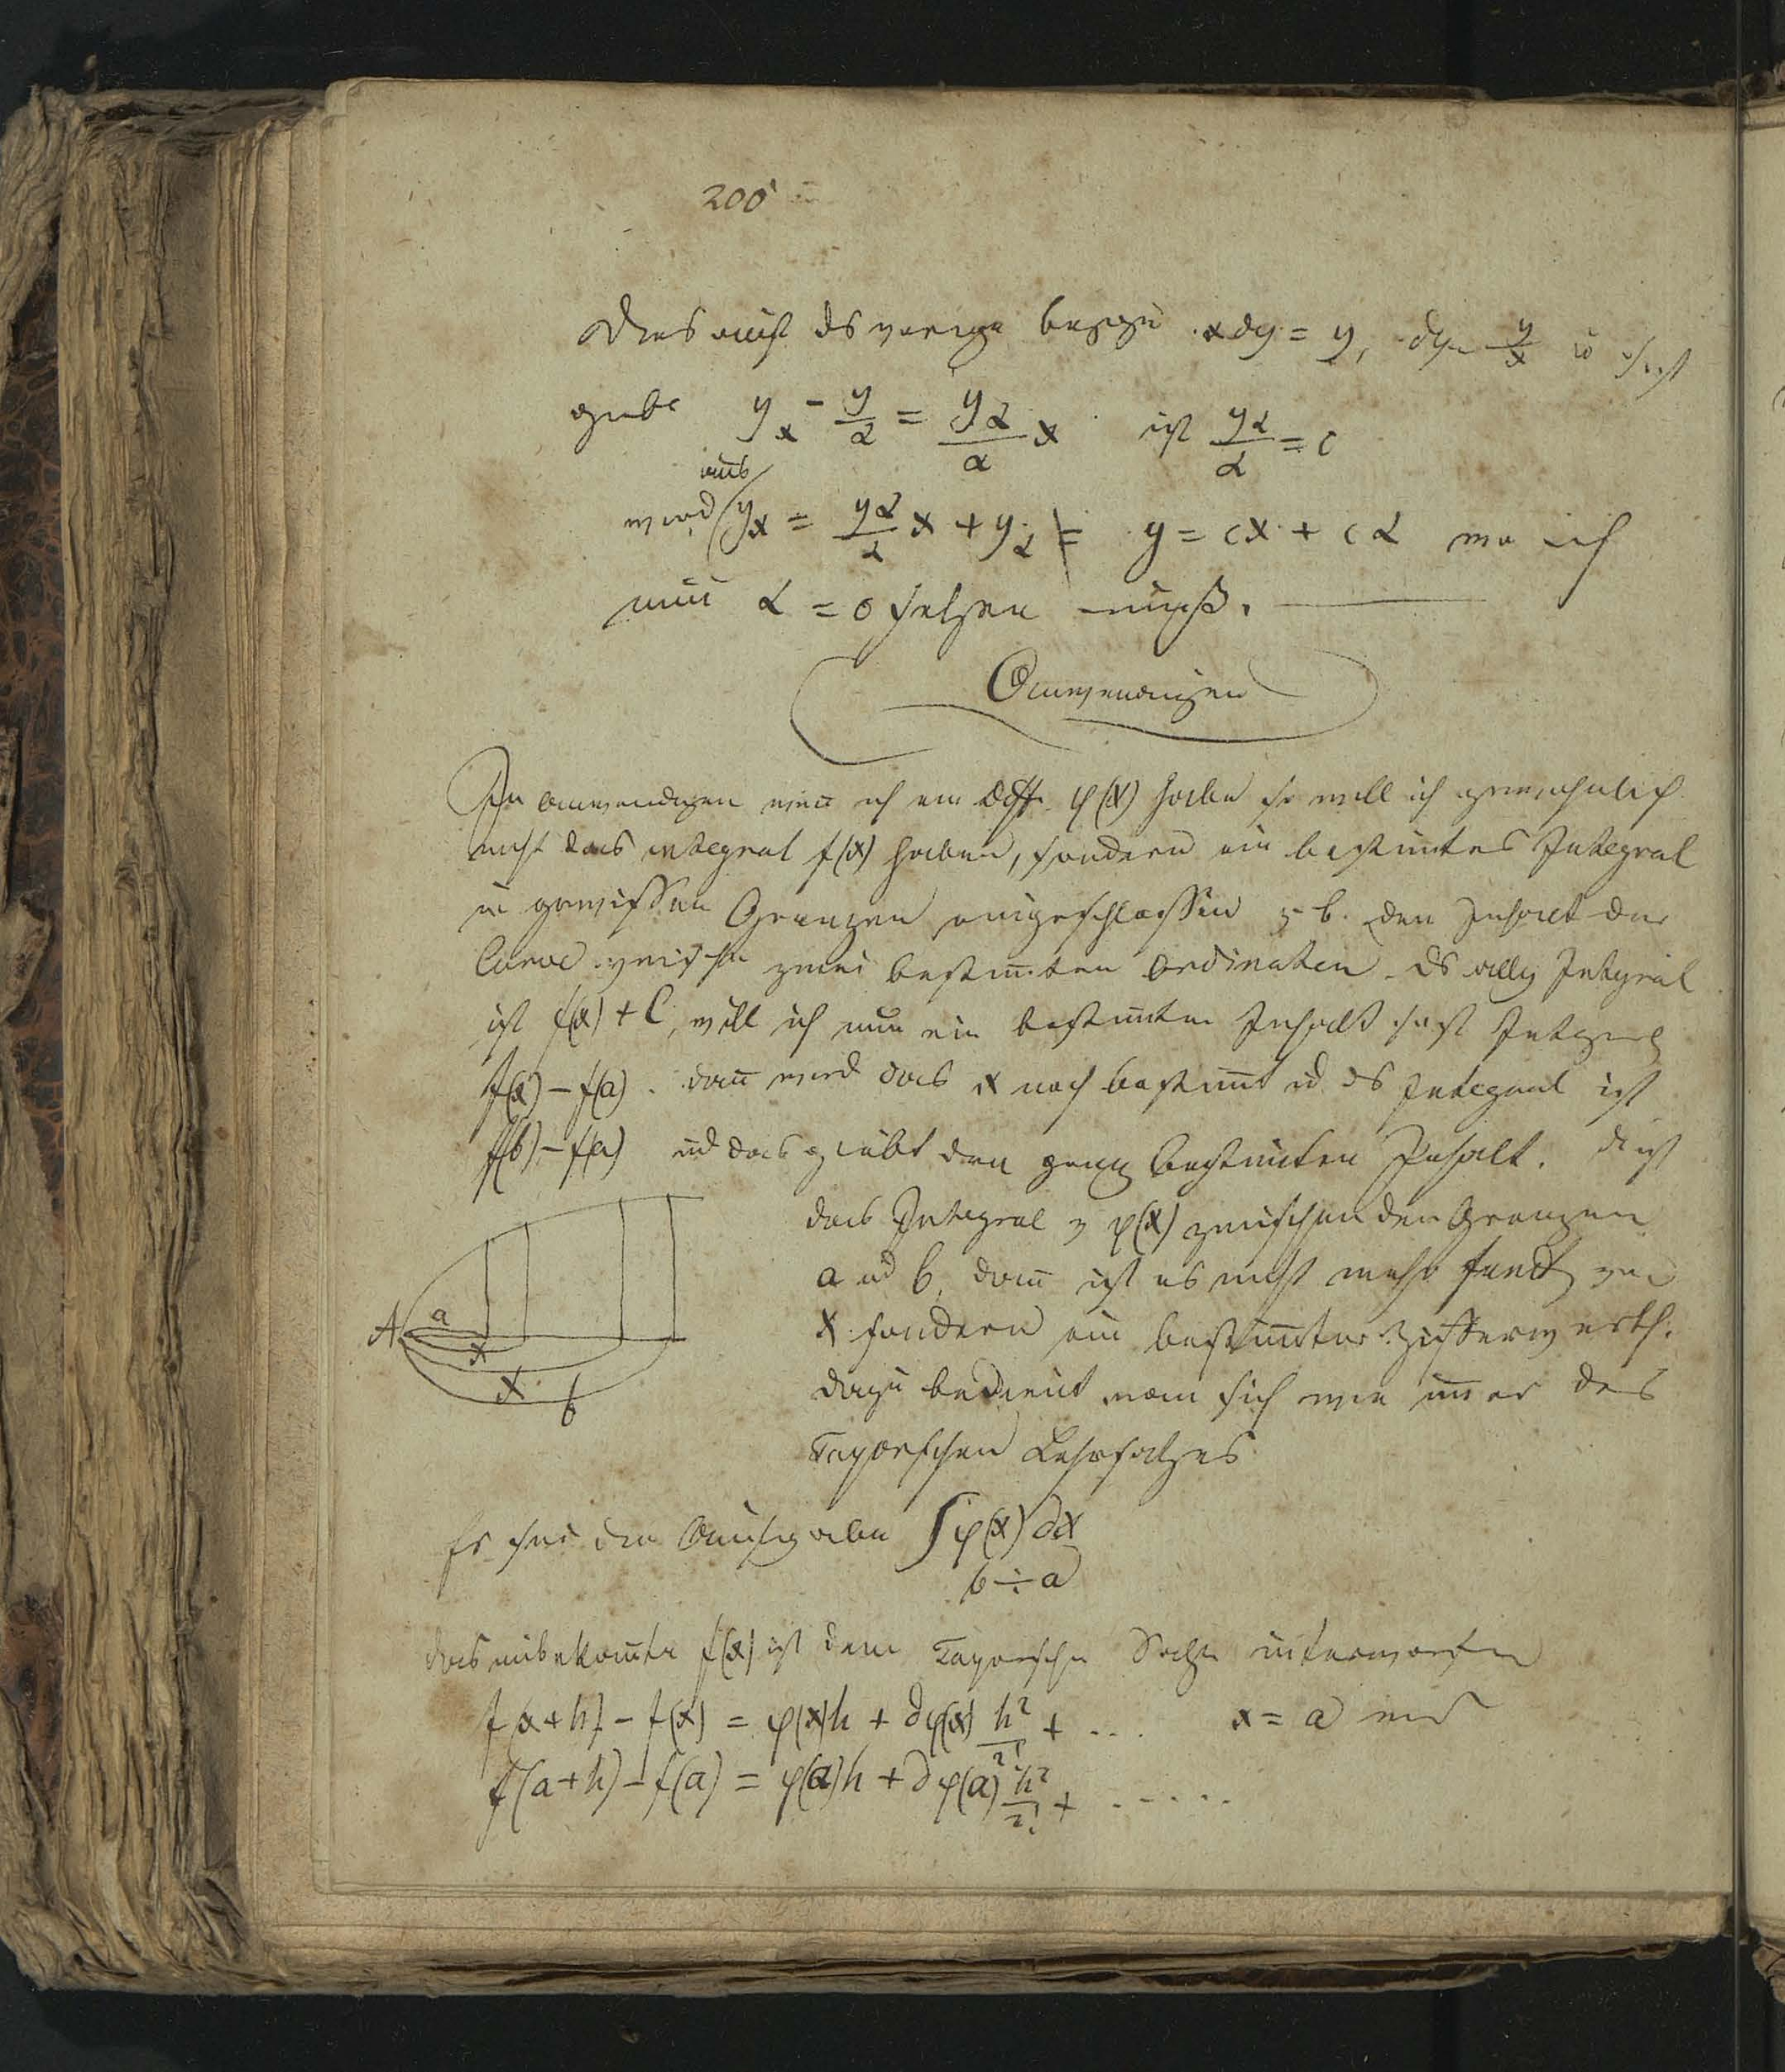 200
Dies auch das vorige xdy = y, dy = y/x
gebe y_x - y_α = y_α/α x ist y_α/α = c
aus
wird y_x = y_α/α x + y_α = y = cx + cα wo ich
nun α = 0 setzen muß.
Anwendungen
In Anwendungen wenn ich ein Diff. φ(x) habe so will ich gewöhnlich
nicht das integral f(x) haben, sondern ein bestim̅tes Integral
in gewissen Grenzen eingeschlossen z. b. den Inhalt der
Curve zwischen zwei bestim̅ten ordinaten. Ds allg Integral
ist f(x) + C, will ich nun ein bestim̅ten Inhalt so ist Integral
f(x) – f(a). dan̅ wird das x noch bestim̅t ud ds Integral ist
f(b) – f(a) ud das giebt den ganz bestim̅ten Inhalt. d ist
das Integral v φ(x) zwischen den Grenzen
a ud b, dan̅ ist es nicht mehr funct von
x sondern ein bestim̅ter Ziffernwerth.
dazu bedient man sich wie im̅er des
Taylorschen Lehrsatzes
A a x x b
Es sei die Aufgabe ∫φ(x) dx
b ÷ a
das unbekan̅te f(x) ist dem Taylorschen Satze unterworfen
f(x+h) – f(x) = φ(x)h + ∂φ(x) h²/2! + ... x = a wird
f(a+h) – f(a) = φ(a)h + ∂φ(a) h²/2! + .....